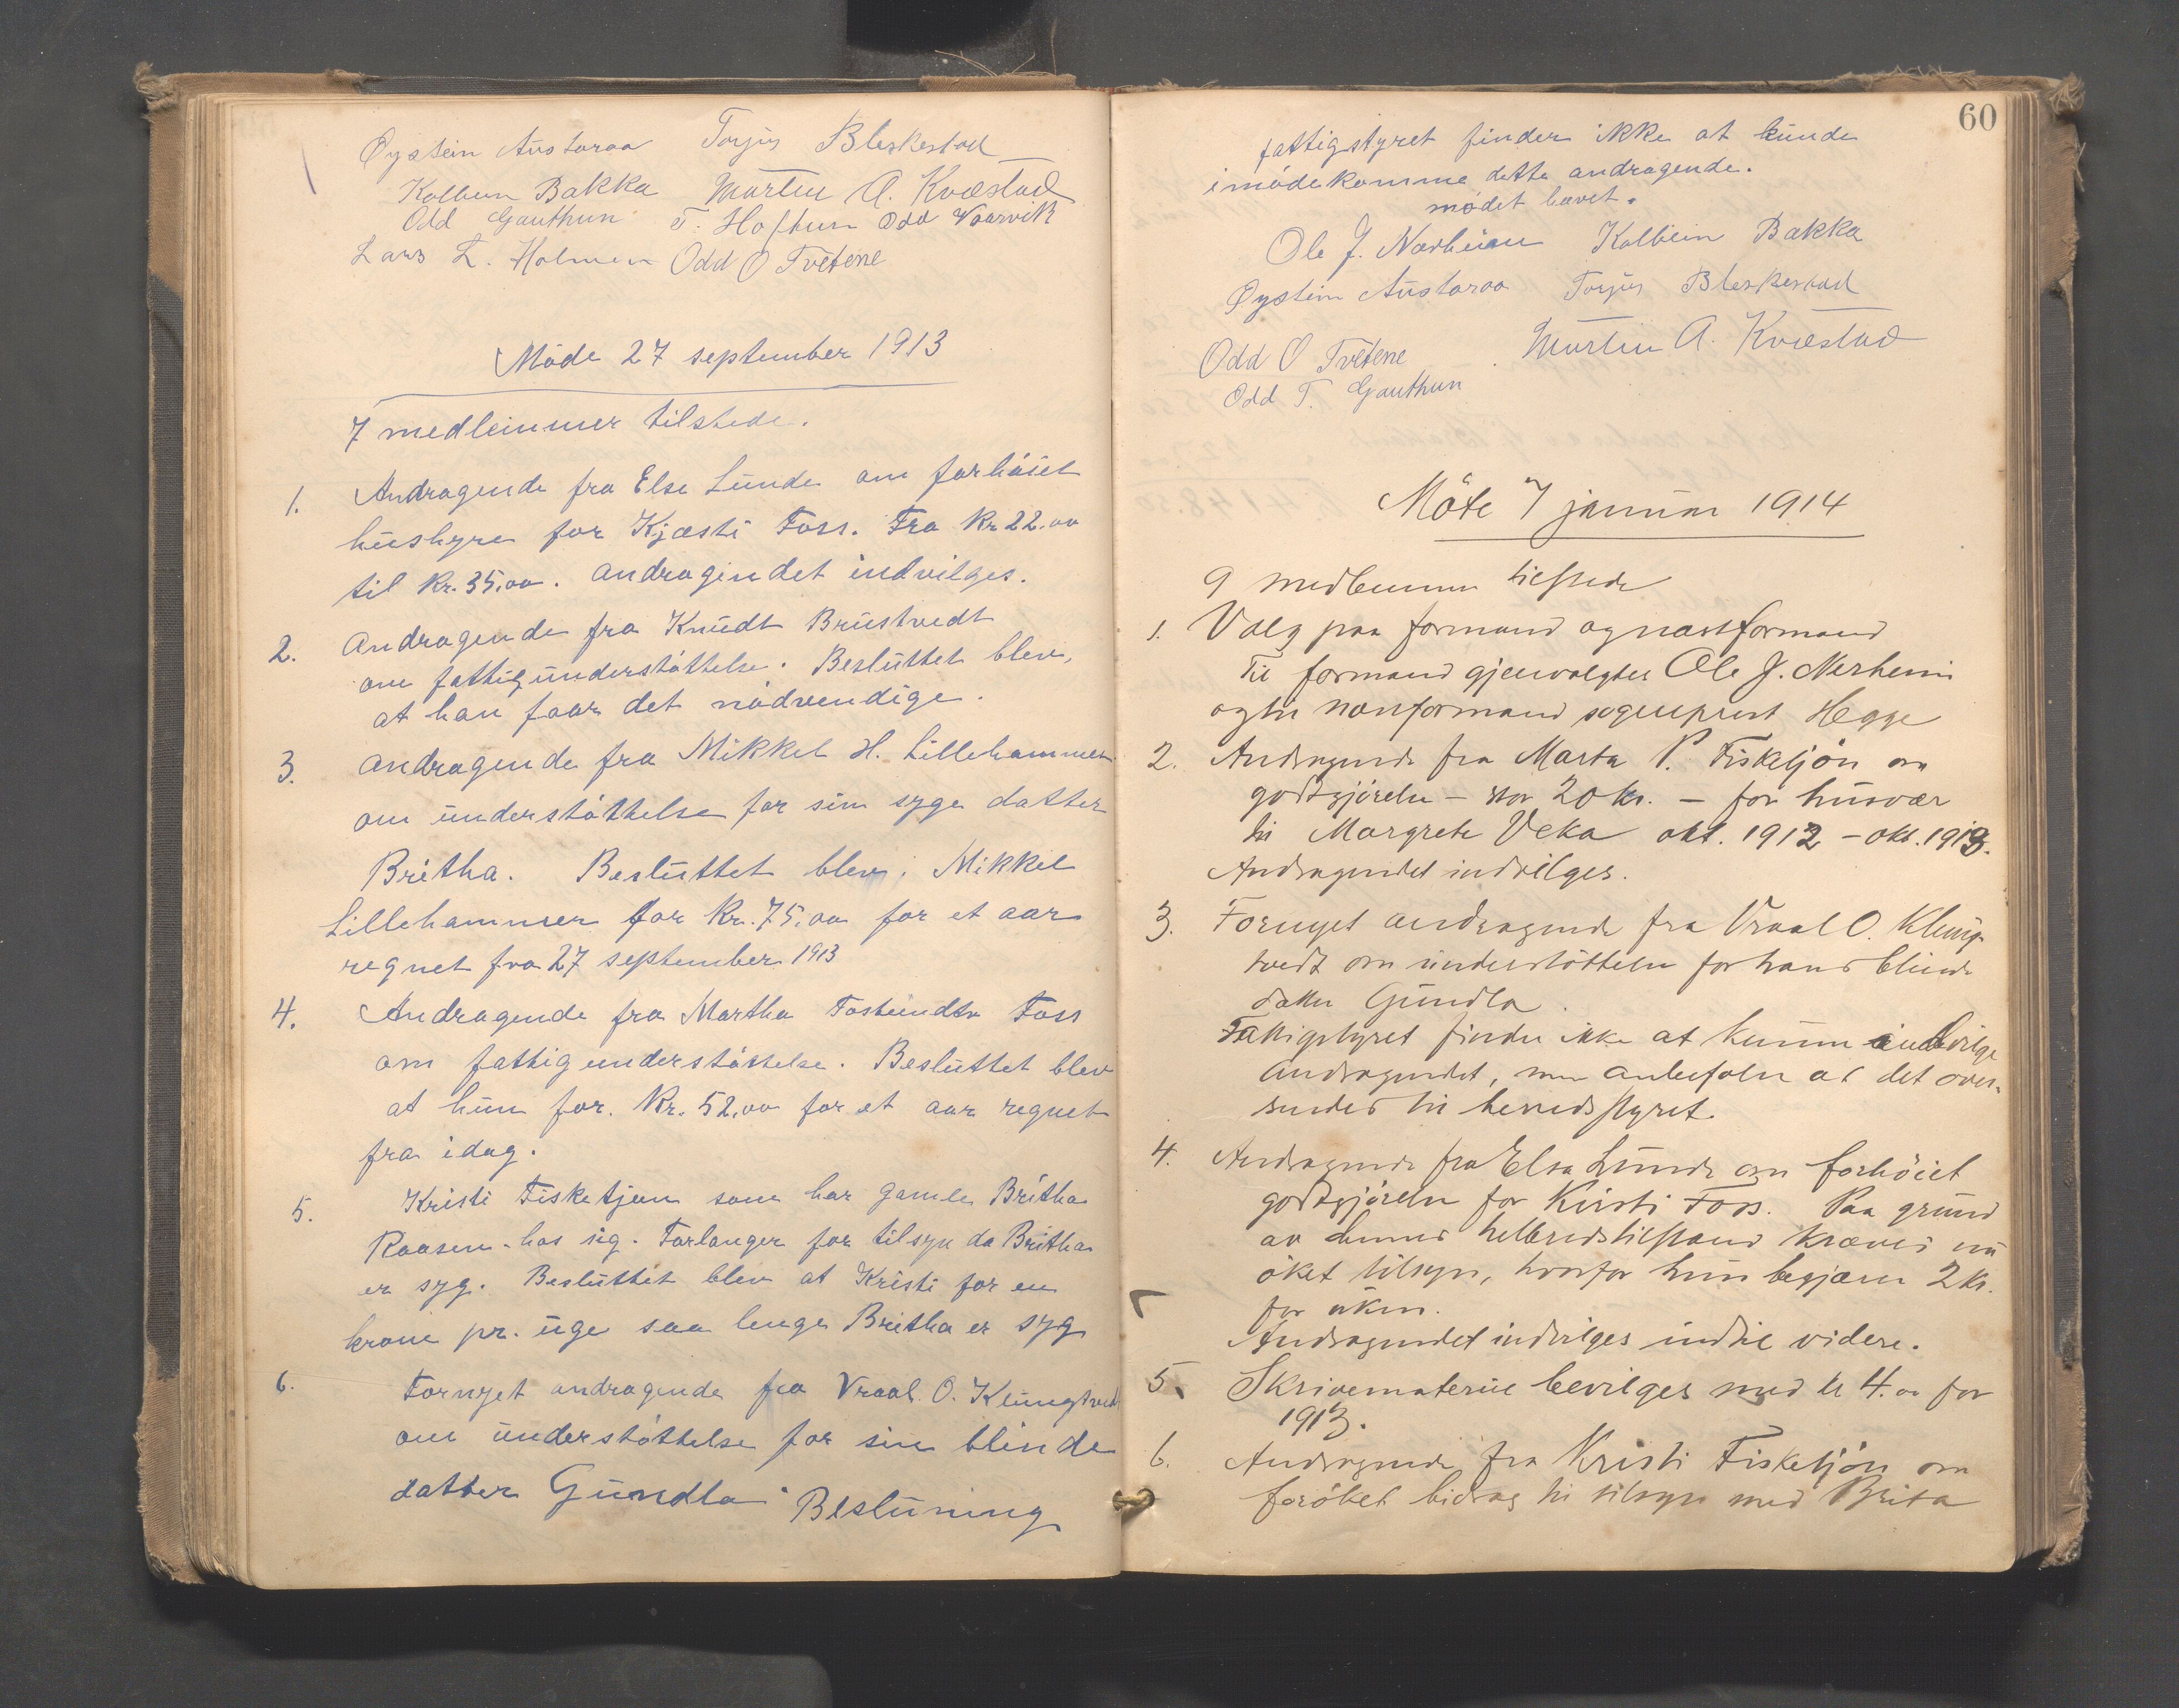 Øystein Austaraa Torjus Bleskestad
Kolbein Bakka Martin A. Kvæstad
Odd Gauthun T. Hoftun Odd Vaarvik
Lars L. Holmen Odd O Tvetene
Møde 27 september 1913
7 medlemmer tilstede.
1. Andragende fra Else Lunde om forhøiet
hushyre for Kjæsti Foss. Fra Kr 22.00
til Kr. 35,00. andragendet indvilges.
2. Andragende fra Knudt Brustvedt
om fattigunderstøttelse. Besluttet blev,
at han faar det nødvendige.
3. andragende fra Mikkel H. Lillehammer
om understøttelse for sin syge datter
Britha. Besluttet blev, Mikkel
Lillehammer for Kr. 75,00 for et aar
regnet fra 27 september 1913
4. Andragende fra Martha Fosteindtr Foss
om fattigunderstøttelse. Besluttet blev
at hun for. Kr. 52,00 for et aar regnet
fra idag.
5. Kristi Fisketjøn som har gamle Britha
Raasen hos sig. Forlanger for tilsyn da Britha
er syg. Besluttet blev at Kristi for en
krone pr. uge saa lenge Britha er syg
6. Fornyet andragende fra Vraal O. Klungtvedt
om understøttelse for sin blinde
datter Gundla Beslutning
60
fattigstyret finder ikke at kunde
imødekomme dette andragende.
mødet hævet.
Ole J. Nærheim Kolbein Bakka
Øystein Austaraa Torjus Bleskestad
Odd O Tvetene Martin A. Kvæstad
Odd T. Gauthun
Møte 7 januar 1914
9 medlemmer tilstede
1. Valg paa formand og næstformand
Til formand gjenvalgtes Ole J. Nerheim
og til næstformand sogneprest Hegge
2. Andragende fra Marta P. Fisketjøn om
godtgjørelse – stor 20 kr. – for husvær
til Margrete Veka okt. 1912 – okt. 1913.
Andragendet indvilges.
3. Fornyet andragende fra Vraal O. Klung-
tvedt om understøttelse for hans blinde
datter Gundla.
Fattigstyret finder ikke at kunne indvilge
andragendet, men anbefaler at det over-
sendes til herredsstyret.
4. Andragende fra Elsa Lunde om forhøiet
godtgjørelse for Kirsti Foss. Paa grund
av hennes helbredstilstand kræves nu
øket tilsyn, hvorfor hun begjærer 2 kr.
for uken.
Andragendet indvilges indtil videre.
5. Skrivematerial bevilges med kr 4.00 for
1913.
6. Andragende fra Kristi Fisketjøn om
forøket bidrag til tilsyn med Brita